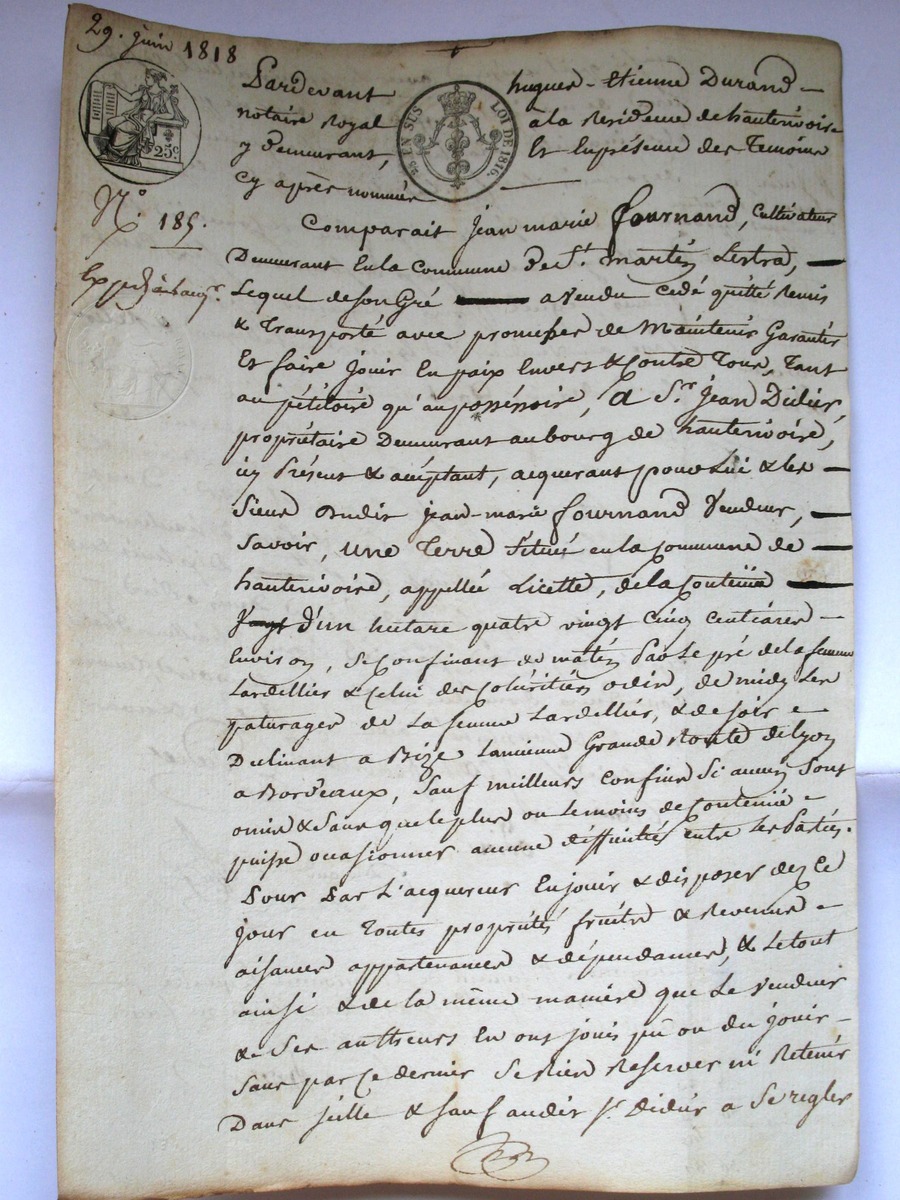 29. juin 1818
25c
EN SUS
LOI DE 1816.
N.° 185.
Pardevant hugues-Etienne Durand
notaire Royal a la Résidence de hauterivoire
y Demeurant, Et En présence des Temoins
cy après nommés
Comparait Jean marie fournand, Cultivateur
Demeurant En la Commune de St. martin Lestra,
Lequel de son Gré a vendu cedé quitté Remis
& Transporté avec promesses de Maintenir Garantir
Et faire Jouir En paix Envers & Contre Tous, Tant
au pétitoire qu'au possessoire, A Sr. Jean Didier,
propriétaire Demeurant au bourg de hauterivoire,
icy Présent & acceptant, acquerant pour Lui & les
Siens Dudit Jean-marie fournand Vendeur,
Savoir, une Terre Située en la Commune de
hauterivoire, appellée Licette, de la Contenue
d'un hectare quatre vingt Cinq centiares
Environ, Se Confinant de matin par Le pré de la femme
Lardellier & Celui des Cohéritiers odin, de midy Les
paturages de La femme Lardellier, & de soir
Declinant a Bize Lancienne Grande Route de Lyon
a Bordeaux, Sauf meilleurs confins Si aucuns Sont
omis & Sans que le plus ou Le moins de Contenue
puisse occasionner aucune difficultés entre Les Parties.
Pour Par L'acquereur En jouir & disposer dez Ce
Jour en Toutes propriétés fruits & Revenus
aisances appartenances & dépendances, & Le tout
ainsi & de la même maniere que Le Vendeur
& Ses autheurs En ont joui pû ou du jouir
Sans par Ce dernier Se Rien Reserver ni Retenir
Dans Icelle & Sauf audit Sr. Didier a Se regler